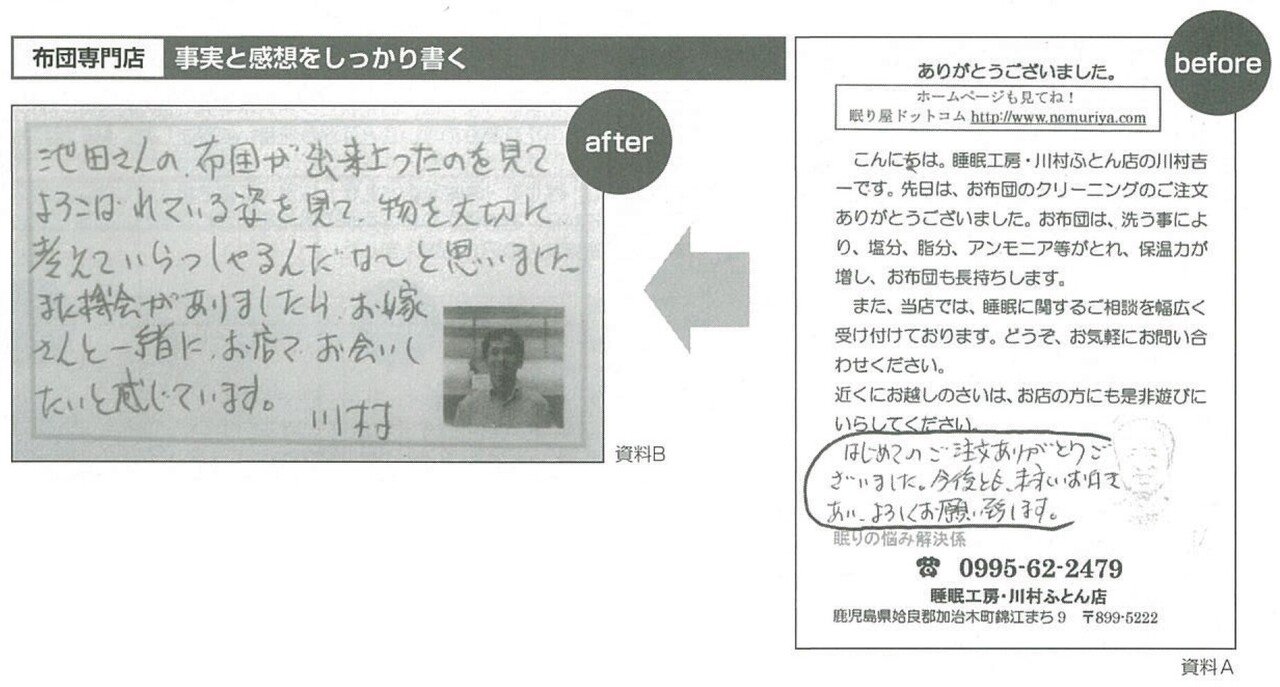 布団専門店 事実と感想をしっかり書く
after
池田さんの、布団が出来上ったのを見て
よろこばれている姿を見て、物を大切に
考えていらっしゃるんだな〜と思いました
また機会がありましたら、お嫁
さんと一緒に、お店で、お会いし
たいと感じています。
川村
資料B
before
ありがとうございました。
ホームページも見てね!
眠り屋ドットコム http://www.nemuriya.com
こんにちは。睡眠工房・川村ふとん店の川村吉
一です。先日は、お布団のクリーニングのご注文
ありがとうございました。お布団は、洗う事によ
り、塩分、脂分、アンモニア等がとれ、保温力が
増し、お布団も長持ちします。
また、当店では、睡眠に関するご相談を幅広く
受け付けております。どうぞ、お気軽にお問い合
わせください。
近くにお越しのさいは、お店の方にも是非遊びに
いらしてください。
はじめてのご注文ありがとうご
ざいました。今後とも、末永いお付き
あい、よろしくお願い致します。
眠りの悩み解決係
☎ 0995-62-2479
睡眠工房・川村ふとん店
鹿児島県姶良郡加治木町錦江まち9 〒899-5222
資料A